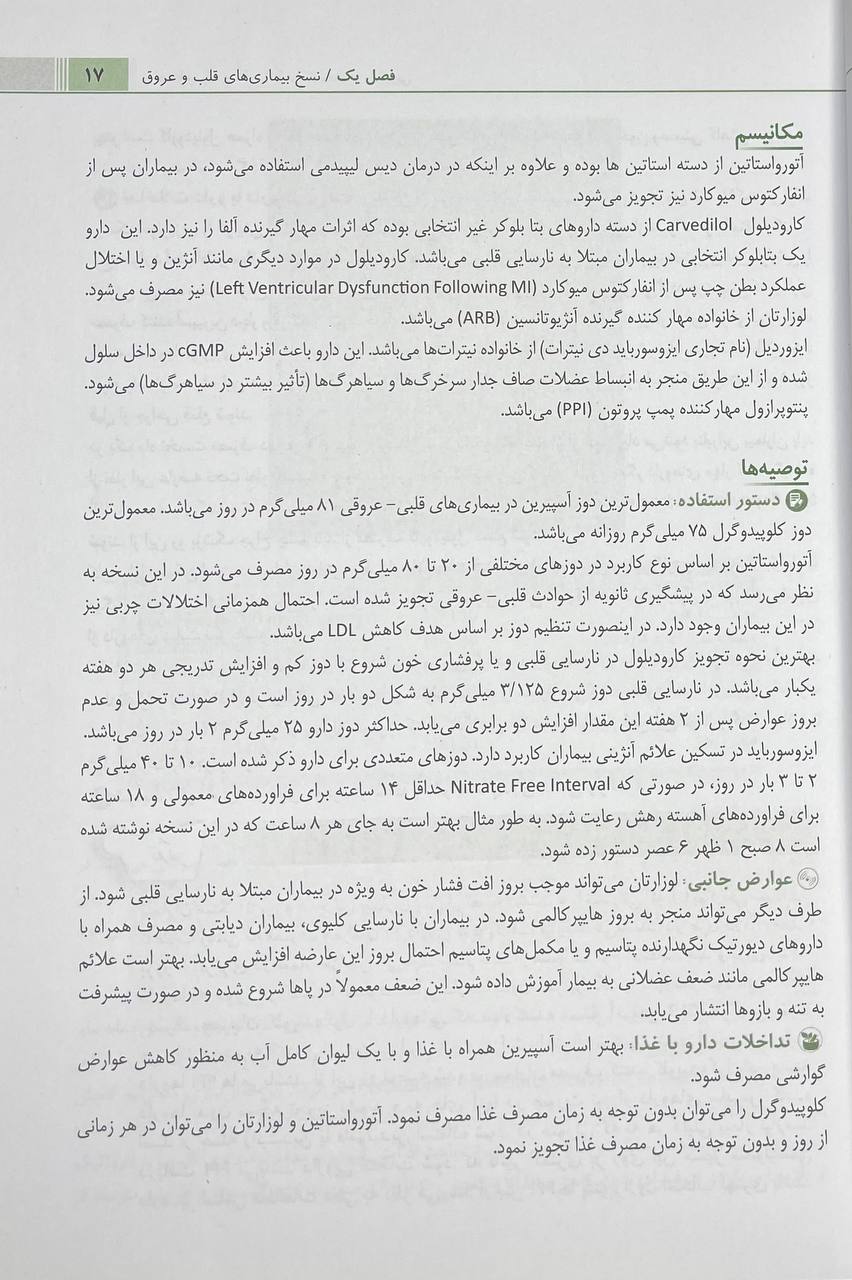 فصل یک / نسخ بیماری‌های قلب و عروق ۱۷
مکانیسم
آتورواستاتین از دسته استاتین ها بوده و علاوه بر اینکه در درمان دیس لیپیدمی استفاده می‌شود، در بیماران پس از
انفارکتوس میوکارد نیز تجویز می‌شود.
کارودیلول Carvedilol از دسته داروهای بتا بلوکر غیر انتخابی بوده که اثرات مهار گیرنده آلفا را نیز دارد. این دارو
یک بتابلوکر انتخابی در بیماران مبتلا به نارسایی قلبی می‌باشد. کارودیلول در موارد دیگری مانند آنژین و یا اختلال
عملکرد بطن چپ پس از انفارکتوس میوکارد (Left Ventricular Dysfunction Following MI) نیز مصرف می‌شود.
لوزارتان از خانواده مهار کننده گیرنده آنژیوتانسین (ARB) می‌باشد.
ایزوردیل (نام تجاری ایزوسورباید دی نیترات) از خانواده نیترات‌ها می‌باشد. این دارو باعث افزایش cGMP در داخل سلول
شده و از این طریق منجر به انبساط عضلات صاف جدار سرخرگ‌ها و سیاهرگ‌ها (تأثیر بیشتر در سیاهرگ‌ها) می‌شود.
پنتوپرازول مهارکننده پمپ پروتون (PPI) می‌باشد.
توصیه‌ها
دستور استفاده: معمول‌ترین دوز آسپیرین در بیماری‌های قلبی- عروقی ۸۱ میلی‌گرم در روز می‌باشد. معمول‌ترین
دوز کلوپیدوگرل ۷۵ میلی‌گرم روزانه می‌باشد.
آتورواستاتین بر اساس نوع کاربرد در دوزهای مختلفی از ۲۰ تا ۸۰ میلی‌گرم در روز مصرف می‌شود. در این نسخه به
نظر می‌رسد که در پیشگیری ثانویه از حوادث قلبی- عروقی تجویز شده است. احتمال همزمانی اختلالات چربی نیز
در این بیماران وجود دارد. در اینصورت تنظیم دوز بر اساس هدف کاهش LDL می‌باشد.
بهترین نحوه تجویز کارودیلول در نارسایی قلبی و یا پرفشاری خون شروع با دوز کم و افزایش تدریجی هر دو هفته
یکبار می‌باشد. در نارسایی قلبی دوز شروع ۳/۱۲۵ میلی‌گرم به شکل دو بار در روز است و در صورت تحمل و عدم
بروز عوارض پس از ۲ هفته این مقدار افزایش دو برابری می‌یابد. حداکثر دوز دارو ۲۵ میلی‌گرم ۲ بار در روز می‌باشد.
ایزوسورباید در تسکین علائم آنژینی بیماران کاربرد دارد. دوزهای متعددی برای دارو ذکر شده است. ۱۰ تا ۴۰ میلی‌گرم
۲ تا ۳ بار در روز، در صورتی که Nitrate Free Interval حداقل ۱۴ ساعته برای فراورده‌های معمولی و ۱۸ ساعته
برای فراورده‌های آهسته رهش رعایت شود. به طور مثال بهتر است به جای هر ۸ ساعت که در این نسخه نوشته شده
است ۸ صبح ۱ ظهر ۶ عصر دستور زده شود.
عوارض جانبی: لوزارتان می‌تواند موجب بروز افت فشار خون به ویژه در بیماران مبتلا به نارسایی قلبی شود. از
طرف دیگر می‌تواند منجر به بروز هایپرکالمی شود. در بیماران با نارسایی کلیوی، بیماران دیابتی و مصرف همراه با
داروهای دیورتیک نگهدارنده پتاسیم و یا مکمل‌های پتاسیم احتمال بروز این عارضه افزایش می‌یابد. بهتر است علائم
هایپرکالمی مانند ضعف عضلانی به بیمار آموزش داده شود. این ضعف معمولاً در پاها شروع شده و در صورت پیشرفت
به تنه و بازوها انتشار می‌یابد.
تداخلات دارو با غذا: بهتر است آسپیرین همراه با غذا و با یک لیوان کامل آب به منظور کاهش عوارض
گوارشی مصرف شود.
کلوپیدوگرل را می‌توان بدون توجه به زمان مصرف غذا مصرف نمود. آتورواستاتین و لوزارتان را می‌توان در هر زمانی
از روز و بدون توجه به زمان مصرف غذا تجویز نمود.